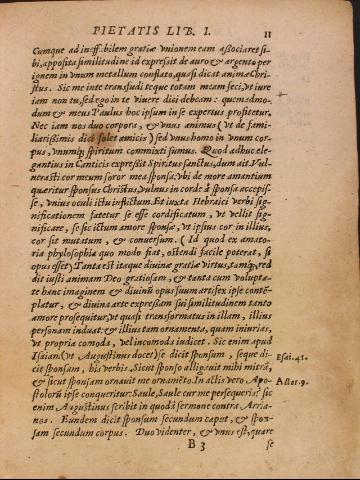 PIETATIS LIB. I. 11
Cumque ad ineffabilem gratiæ vnionem eam aßociaret si-
bi, apposita similitudine id expreßit de auro & argento per
ignem in vnum metallum conflato, quasi dicat animæ Chri
stus. Sic me inte transfudi teque totam meam feci, vt iure
iam non tu, sed ego in te viuere dici debeam: quemadmo-
dum & meus Paulus hoc ipsum in se expertus profitetur.
Nec iam nos duo corpora, & vnus animus (vt de fami-
liarißimis dici solet amicis) sed vnus homo in vnum cor-
pus, vnumq; spiritum commixti sumus. Quod adhuc ele-
gantius in Canticis expreßit Spiritus sanctus, dum ait. Vul-
nerasti cor meum soror mea sponsa: vbi de more amantium
queritur sponsus Christus, vulnus in corde â sponsa accepis-
se, vnius oculi ictu inflictum. Et iuxta Hebraici verbi sig-
nificationem fatetur se esse cordificatum, vt vellit signi
ficare, se sic ictum amore sponsæ, vt ipsius cor in illius,
cor sit mutatum, & conuersum. (Id quod ex amato-
ria phylosophia quo modo fiat, ostendi facile poterat, si
opus esset) Tanta est itaque diuinæ gratiæ virtus, tamq; red
dit iusti animam Deo gratiosam, & tanta cum volupta-
te hanc imaginem & diuinũ opus suum artifex ipse contẽ-
platur, & diuina arte expreßam sui similitudinem tanto
amore prosequitur, vt quasi transformatus in illam, illius
personam induat: & illius tam ornamenta, quam iniurias,
vt propria comoda, vel incomoda iudicet. Sic enim apud
Isaiam (vt Augustinus docet) se dicit sponsum, seque di-
cit sponsam, his verbis, Sicut sponso alligauit mihi mitrã,
& sicut sponsam ornauit me ornamẽto. In actis vero Apo-
stolorũ ipse conqueritur: Saule, Saule cur me persequeris? sic
enim Augustinus scribit in quodã sermone contra Arria-
nos. Eundem dicit sponsum secundum caput, & spon-
sam secundum corpus. Duo videnter, & vnus est, quare
Esai. 41.
Actor. 9.
B 3 se